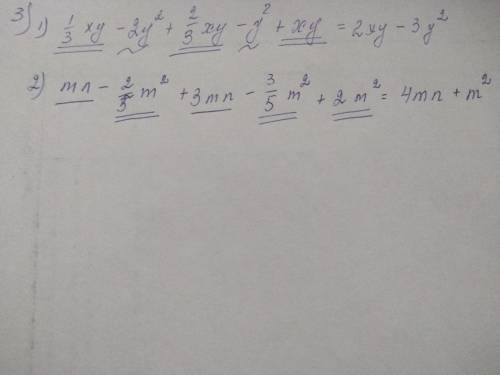 3) 1) 1/3 xy - 2y² + 2/3 xy - y² + xy = 2xy - 3y²
2) mn - 2/5 m² + 3mn - 3/5 m² + 2m² = 4mn + m²